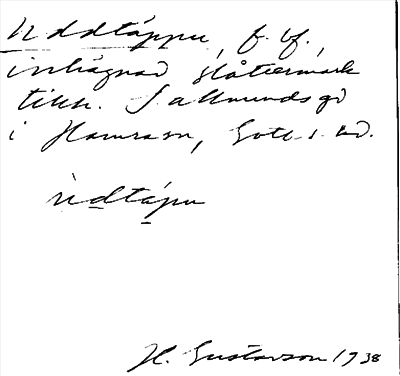 Uddtäppu, f. bf.,
inhägnad slåttermark
tillh. Sallmundsgd
i Hamra sn, Gotl. s. hd.
ùdtápu
H. Gustavson 1938